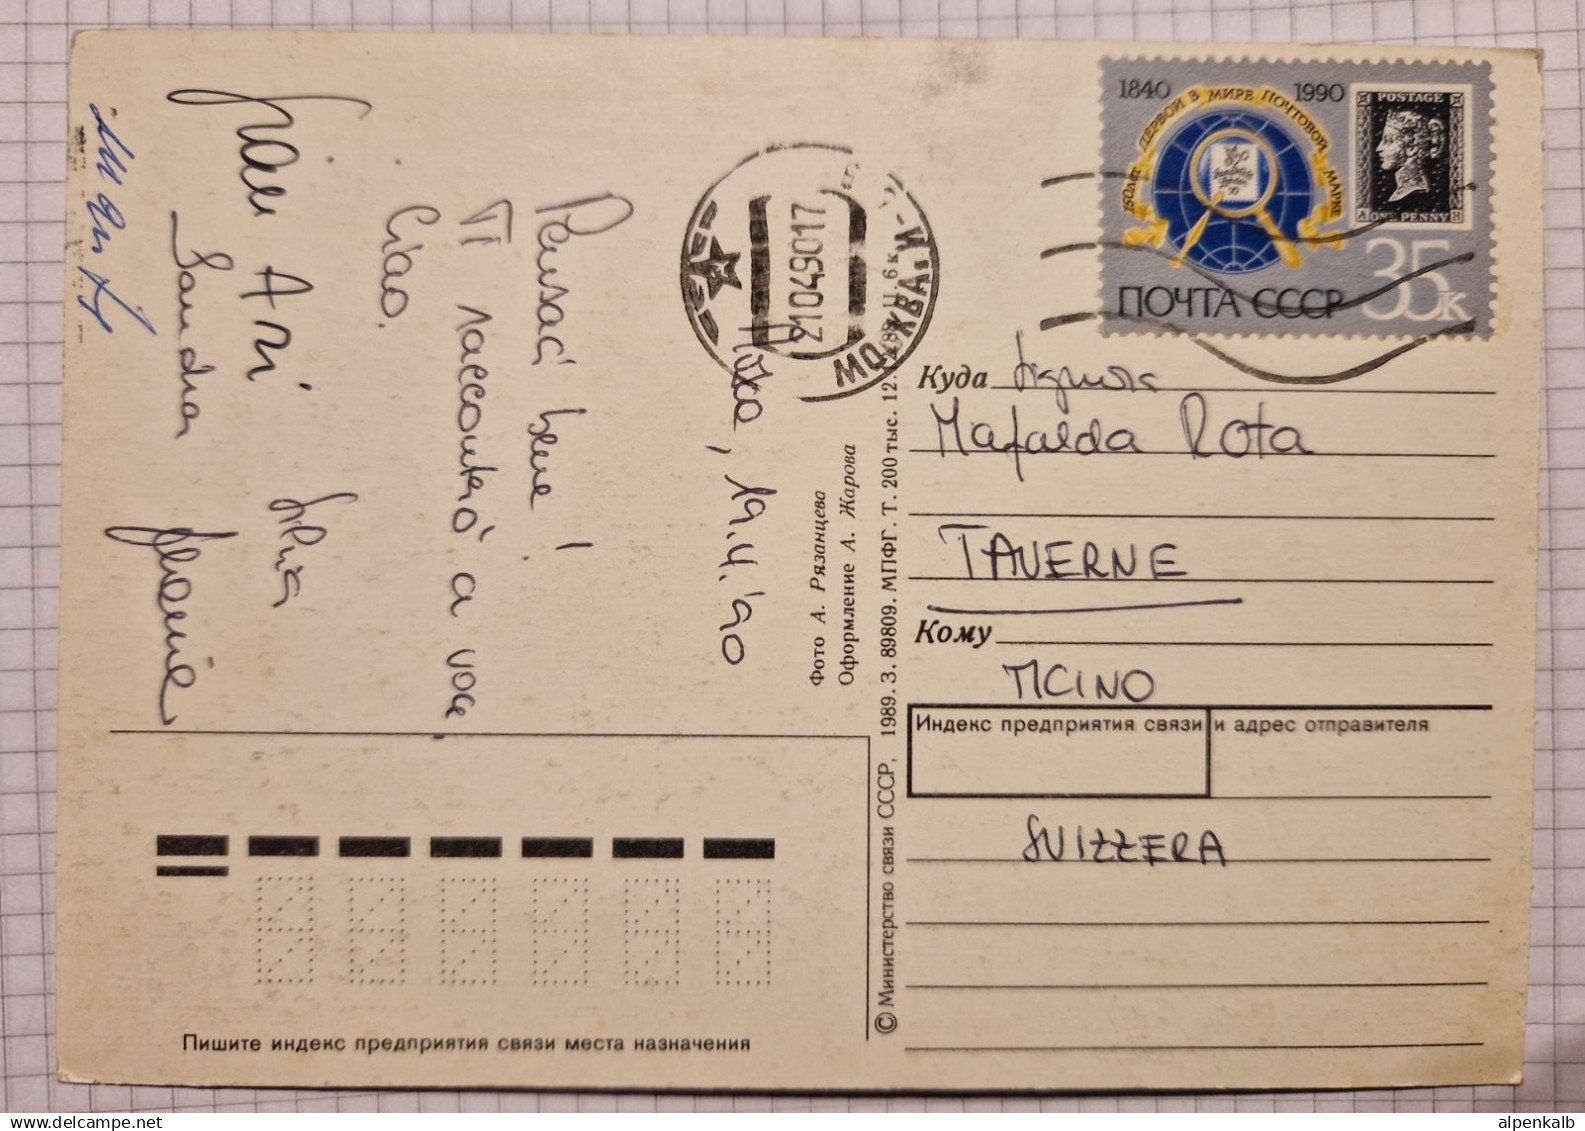 1840 1990
150 лет ПЕРВОЙ В МИРЕ ПОЧТОВОЙ МАРКЕ
POSTAGE
A ONE PENNY H
35к
ПОЧТА СССР
21049017
МОСКВА
19.4.'90
Pensaci bene!
Ti racconterò a voce
Ciao.
Silvia
Sandra
Куда Signora
Mafalda Rota
TAVERNE
Кому
TICINO
Индекс предприятия связи и адрес отправителя
SVIZZERA
Фото А. Рязанцева
Оформление А. Жарова
© Министерство связи СССР, 1989. З. 89809. МПФГ. Т. 200 тыс. 12.
Пишите индекс предприятия связи места назначения
https://www.delcampe.net
alpenkalb